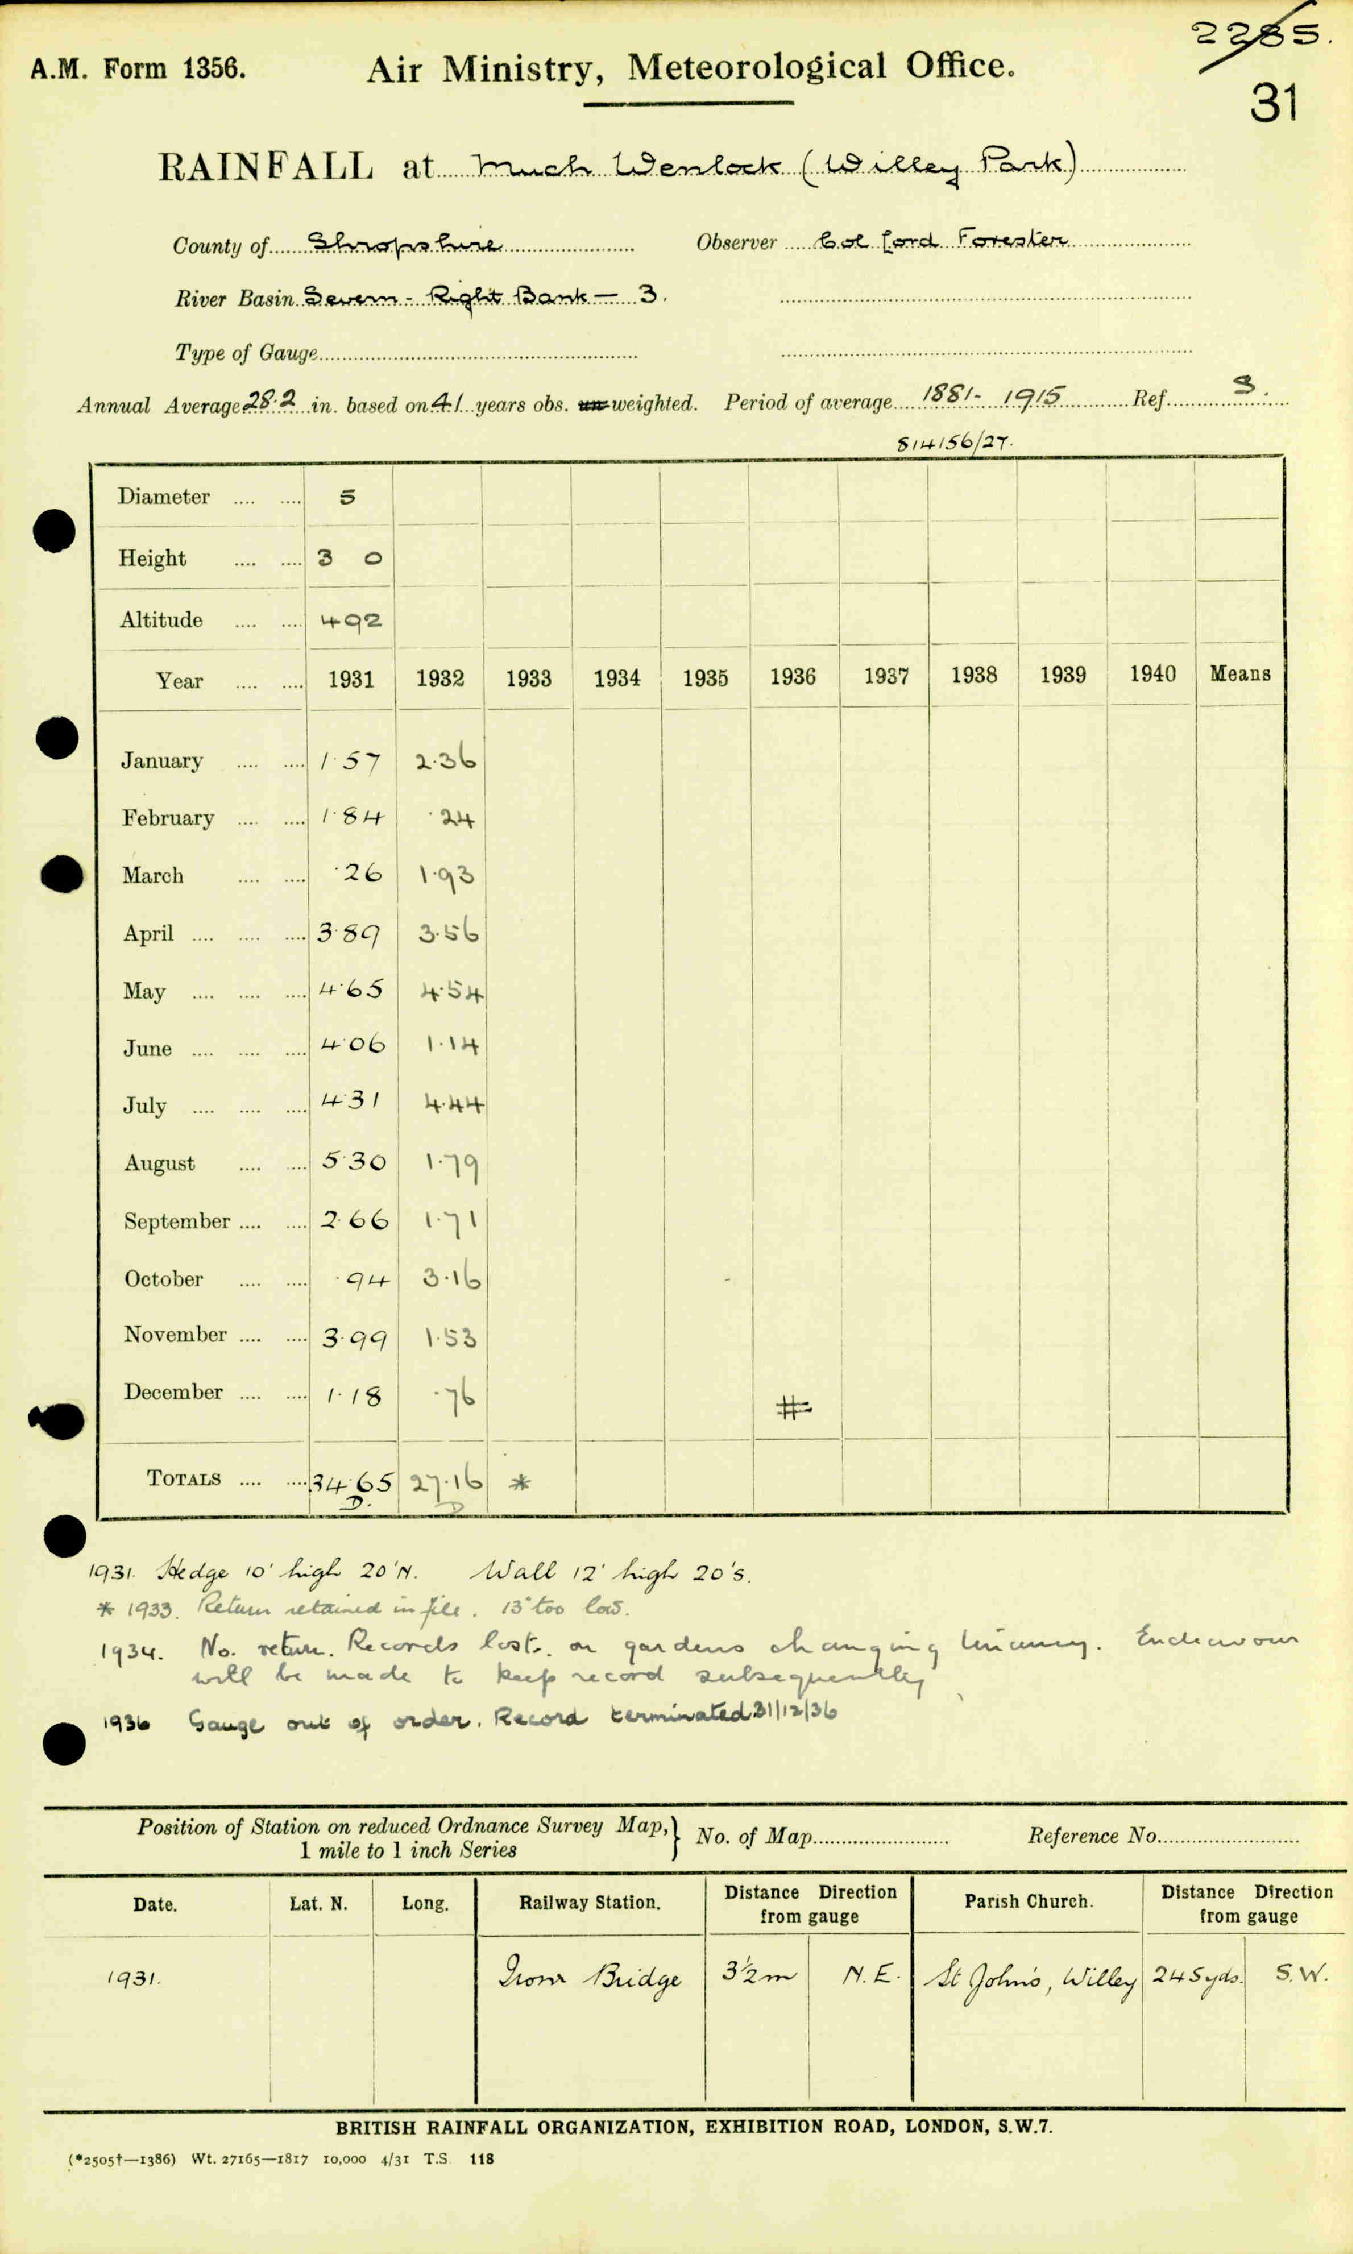 2285.
A.M. Form 1356. Air Ministry, Meteorological Office.
31
RAINFALL at Much Wenlock (Willey Park)
County of Shropshire Observer Col Lord Forester
River Basin Severn - Right Bank - 3.
Type of Gauge
Annual Average 28.2 in. based on 41 years obs. un weighted. Period of average 1881- 1915 Ref. S.
814156/27.
Diameter 5
Height 3 0
Altitude 492
Year 1931 1932 1933 1934 1935 1936 1937 1938 1939 1940 Means
January 1.57 2.36
February 1.84 .24
March .26 1.93
April 3.89 3.56
May 4.65 4.54
June 4.06 1.14
July 4.31 4.44
August 5.30 1.79
September 2.66 1.71
October .94 3.16
November 3.99 1.53
December 1.18 .76 #
TOTALS 34.65 27.16 *
D. D
1931. Hedge 10' high 20'N. Wall 12' high 20'S.
* 1933. Return retained in file. 15" too low.
1934. No return. Records lost on gardens changing tenancy. Endeavour
will be made to keep record subsequently
1936 Gauge out of order. Record terminated 31/12/36
Position of Station on reduced Ordnance Survey Map, } No. of Map Reference No.
1 mile to 1 inch Series
Date. Lat. N. Long. Railway Station. Distance Direction from gauge Parish Church. Distance Direction from gauge
1931. Iron Bridge 3½m N.E. St John's, Willey 245yds. S.W.
BRITISH RAINFALL ORGANIZATION, EXHIBITION ROAD, LONDON, S.W.7.
(*2505†—1386) Wt. 27165—1817 10,000 4/31 T.S. 118